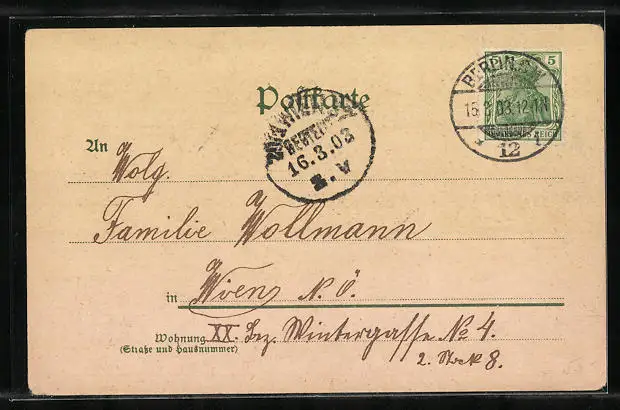 5
BERLIN S.W.
15.3.03.12-1N
12
Postkarte
16.3.03
An Wolg.
Familie Wollmann
in Wien N. Ö.
Wohnung XX. Bez. Wintergasse No 4.
(Straße und Hausnummer)
2. Stock 8.